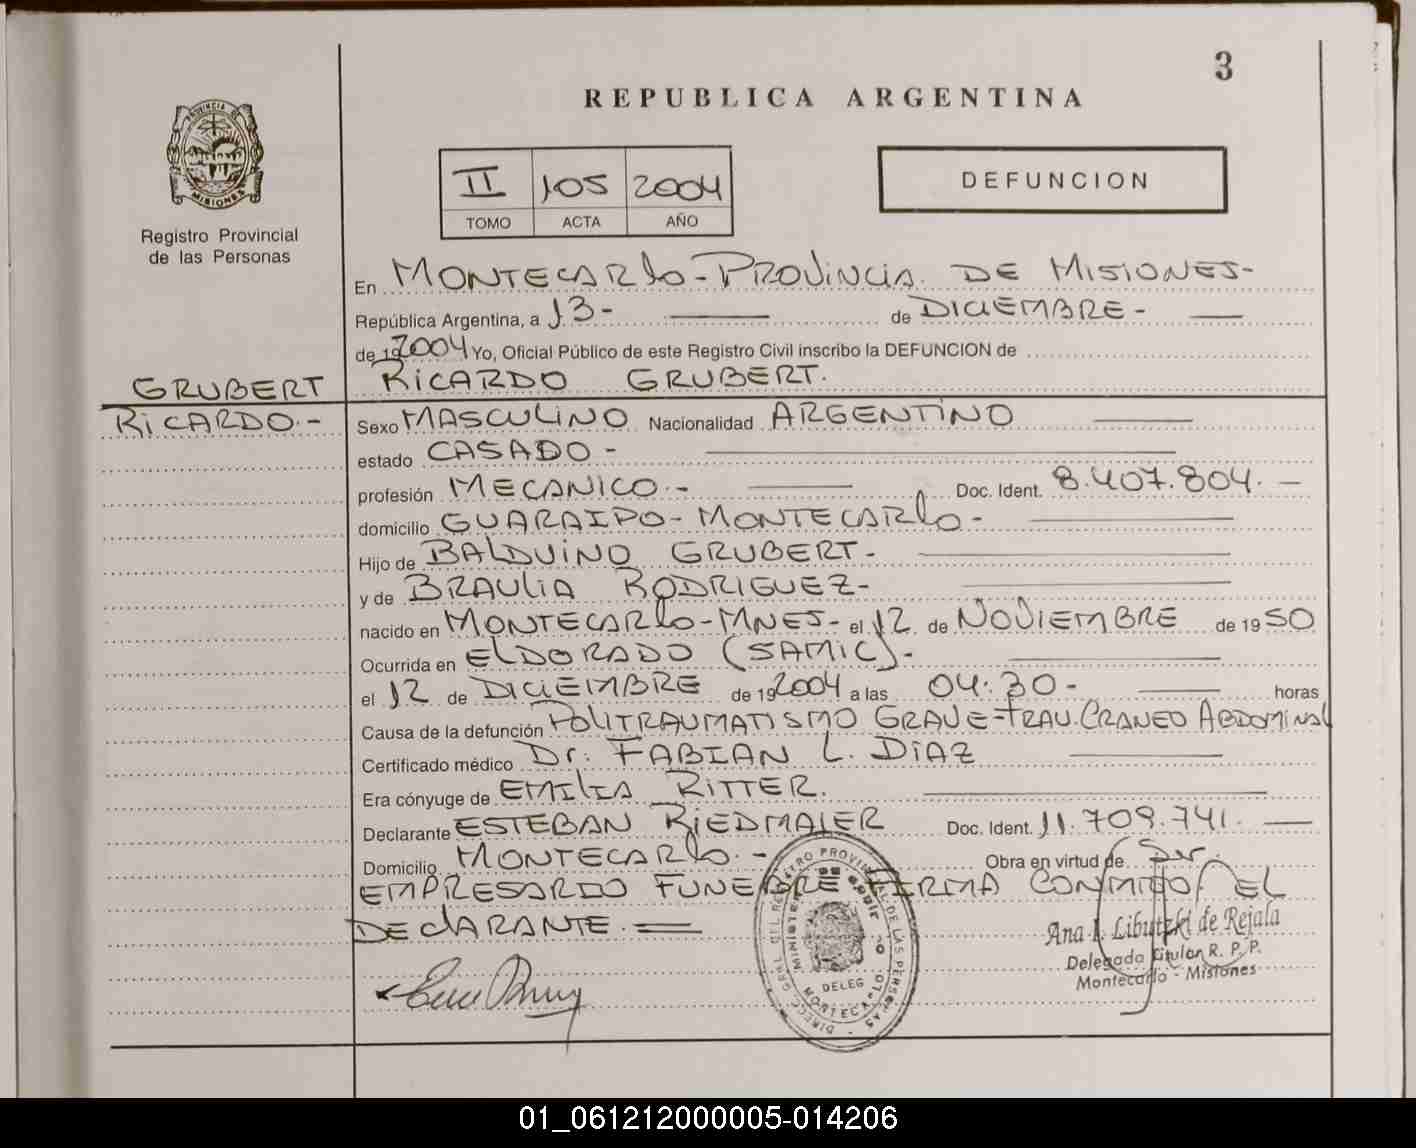 3
REPUBLICA ARGENTINA
PROVINCIA DE
MISIONES
Registro Provincial
de las Personas
II 105 2004
TOMO ACTA AÑO
DEFUNCION
En MONTECARLO - PROVINCIA DE MISIONES -
República Argentina, a 13 - de DICIEMBRE -
de 192004 Yo, Oficial Público de este Registro Civil inscribo la DEFUNCION de
GRUBERT
RICARDO. -
RICARDO GRUBERT.
Sexo MASCULINO Nacionalidad ARGENTINO
estado CASADO -
profesión MECANICO. - Doc. Ident. 8.407.804. -
domicilio GUARAIPO - MONTECARLO -
Hijo de BALDUINO GRUBERT -
y de BRAULIA RODRIGUEZ -
nacido en MONTECARLO - MNES - el 12 de NOVIEMBRE de 1950
Ocurrida en ELDORADO (SAMIC). -
el 12 de DICIEMBRE de 192004 a las 04:30 - horas
Causa de la defunción POLITRAUMATISMO GRAVE - TRAU. CRANEO ABDOMINAL
Certificado médico Dr. FABIAN L. DIAZ
Era cónyuge de EMILIA RITTER.
Declarante ESTEBAN RIEDMAIER Doc. Ident. 11.709.741. -
Domicilio MONTECARLO. - Obra en virtud de Ser
EMPRESARIO FUNEBRE FIRMA CONMIGO EL
DECLARANTE. =
Ana I. Libutzki de Rejala
Delegada Titular R. P. P.
Montecarlo - Misiones
DIRECC. GRAL. DEL REGISTRO PROVINCIAL DE LAS PERSONAS
DELEG
MONTECARLO
01_061212000005-014206